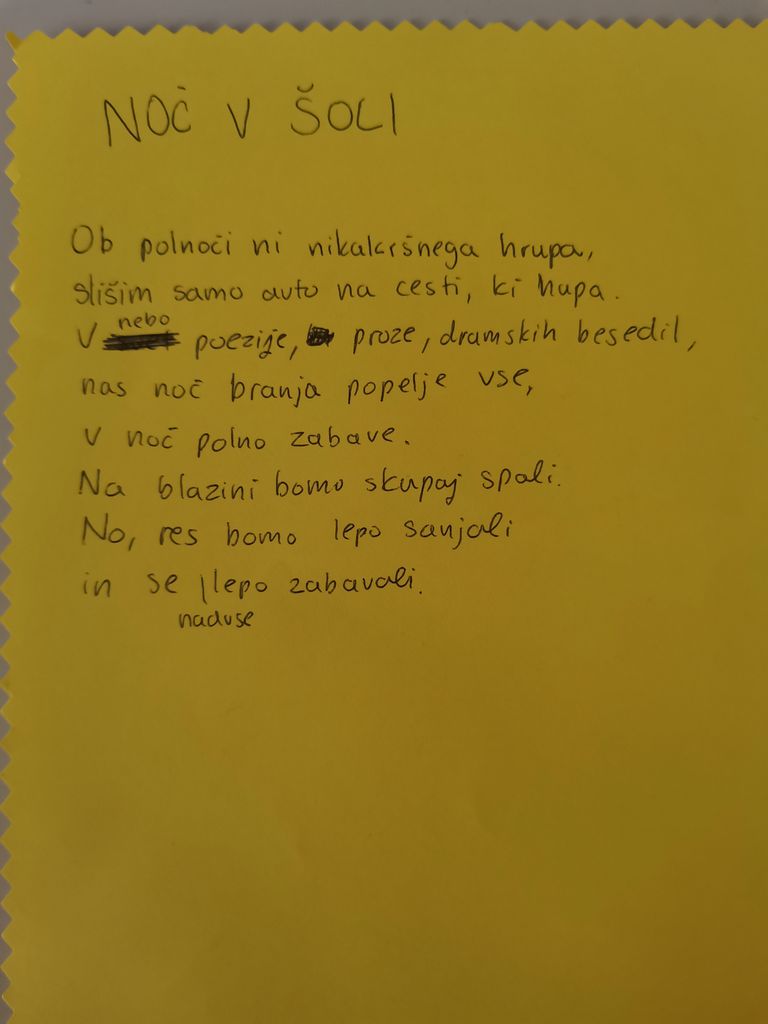 NOČ V ŠOLI
Ob polnoči ni nikakršnega hrupa,
slišim samo avto na cesti, ki hupa.
V nebo poezije, proze, dramskih besedil,
nas noč branja popelje vse,
v noč polno zabave.
Na blazini bomo skupaj spali.
No, res bomo lepo sanjali
in se lepo zabavali.
naduse